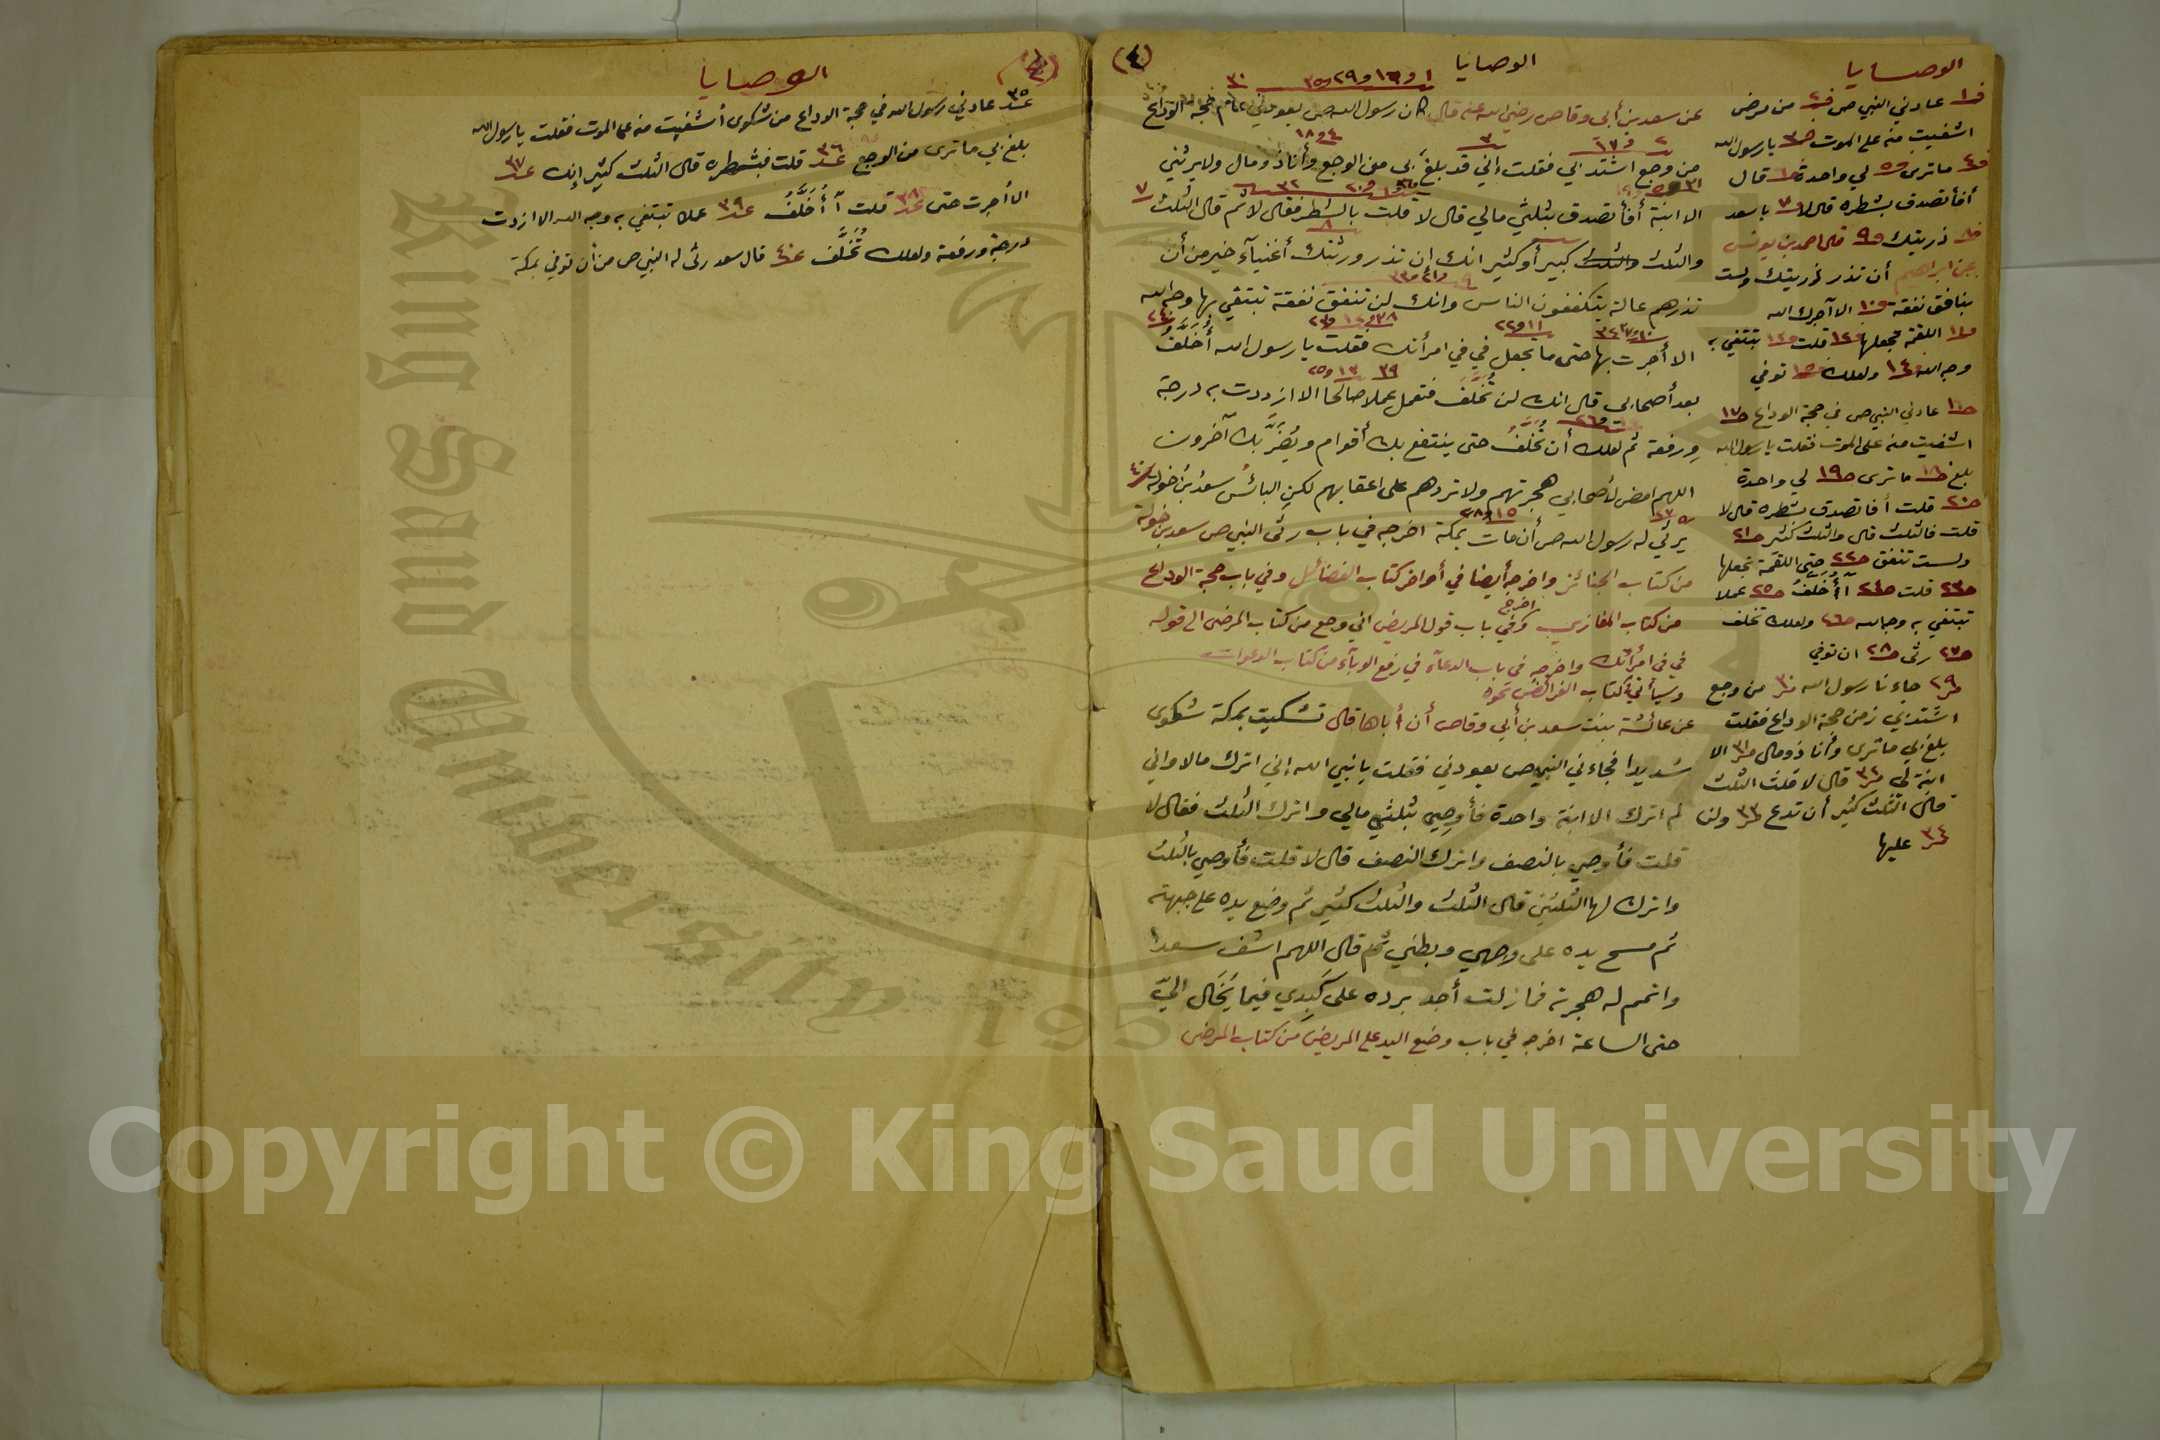 (٤)
الوصايا
الوصايا
عن سعد بن أبى وقاص رضي الله عنه قال كان رسول الله ص يعودني عام حجة الوداع
من وجع اشتد بي فقلت اني قد بلغ بى من الوجع وأنا ذو مال ولا يرثني
الا ابنة أفأتصدق بثلثي مالي قال لا قلت بالشطر فقال لا ثم قال الثلث
والثلث كبير أو كثير انك إن تذر ورثتك أغنيآء خير من أن
تذرهم عالة يتكففون الناس وانك لن تنفق نفقة تبتغي بها وجه الله
الا أجرت بها حتى ما يجعل في في امرأتك فقلت يا رسول الله أُخَلَّفُ
بعد أصحابى قال انك لن تُخَلَّفَ فتعمل عملا صالحا الا ازددت به درجة
ورفعة ثم لعلك أن تُخَلَّفُ حتى ينتفع بك أقوام ويُضَرَّ بك آخرون
اللهم امض لأصحابي هجرتهم ولا تردهم على اعقابهم لكنِ البائسُ سعدُ بنُ خولة
يرثي له رسول الله ص أن مات بمكة اخرجه في باب رثى النبي ص سعد بن خولة
من كتاب الجنائز واخرجه أيضا في أواخر كتاب الفضائل وفي باب حجة الوداع
من كتاب المغازي واخرج في باب قول المريض اني وجع من كتاب المرضى الى قوله
في في امرأتك واخرجه في باب الدعآء في رفع الوبآء من كتاب الدعوات
وسيأتي في كتاب الفرائض نحوه
عن عائشة بنت سعد بن أبي وقاص أن أباها قال تشكيت بمكة شكوى
شديدا فجاءني النبي ص يعودني فقلت يا نبي الله إني اترك مالا واني
لم اترك الا ابنة واحدة فأوصِي بثلثي مالي واترك الثلث فقال لا
قلت فأوصي بالنصف واترك النصف قال لا قلت فأوصي بالثلث
واترك لها الثلثين قال الثلث والثلث كثير ثم وضع يده على جبهته
ثم مسح يده على وجهي وبطني ثم قال اللهم اشف سعدا
واتمم له هجرته فما زلت أجد برده على كَبِدي فيما يُخَال اليّ
حتى الساعة اخرجه في باب وضع اليد على المريض من كتاب المرضى
عادني النبي ص من مرض
اشفيت منه على الموت يا رسول الله
ما ترى لي واحدة قال
أفأتصدق بشطره قال لا يا سعد
ذريتك قال احمد بن يونس
عن ابراهيم أن تذر ذريتك ولست
بنافق نفقة الا آجرك الله
اللقمة تجعلها قلت تبتغي به
وجه الله ولعلك توفي
عادني النبي ص في حجة الوداع
اشفيت منه على الموت فقلت يا رسول الله
بلغ ما ترى لي واحدة
قلت أفأتصدق بشطره قال لا
قلت فالثلث قال والثلث كثير
ولست تنفق حتى اللقمة تجعلها
قلت آأُخَلَّفُ عملا
تبتغي به وجه الله ولعلك تخلف
رثى ان توفي
جاءنا رسول الله من وجع
اشتد بي زمن حجة الوداع فقلت
بلغ بي ما ترى وأنا ذو مال الا
ابنة لي قال لا قلت الثلث
قال الثلث كثير أن تدع ولن
عليها
الوصايا
عادني رسول الله في حجة الوداع من شكوى أشفيت منه على الموت فقلت يا رسول الله
بلغ بي ما ترى من الوجع قلت فبشطره قال الثلث كثير إنك
الا أجرت حتى قلت آأُخَلَّفُ عملا تبتغي به وجه الله الا ازددت
درجة ورفعة ولعلك تُخَلَّف قال سعد رثى له النبي ص من أن توفي بمكة
King Saud University 195
Copyright © King Saud University